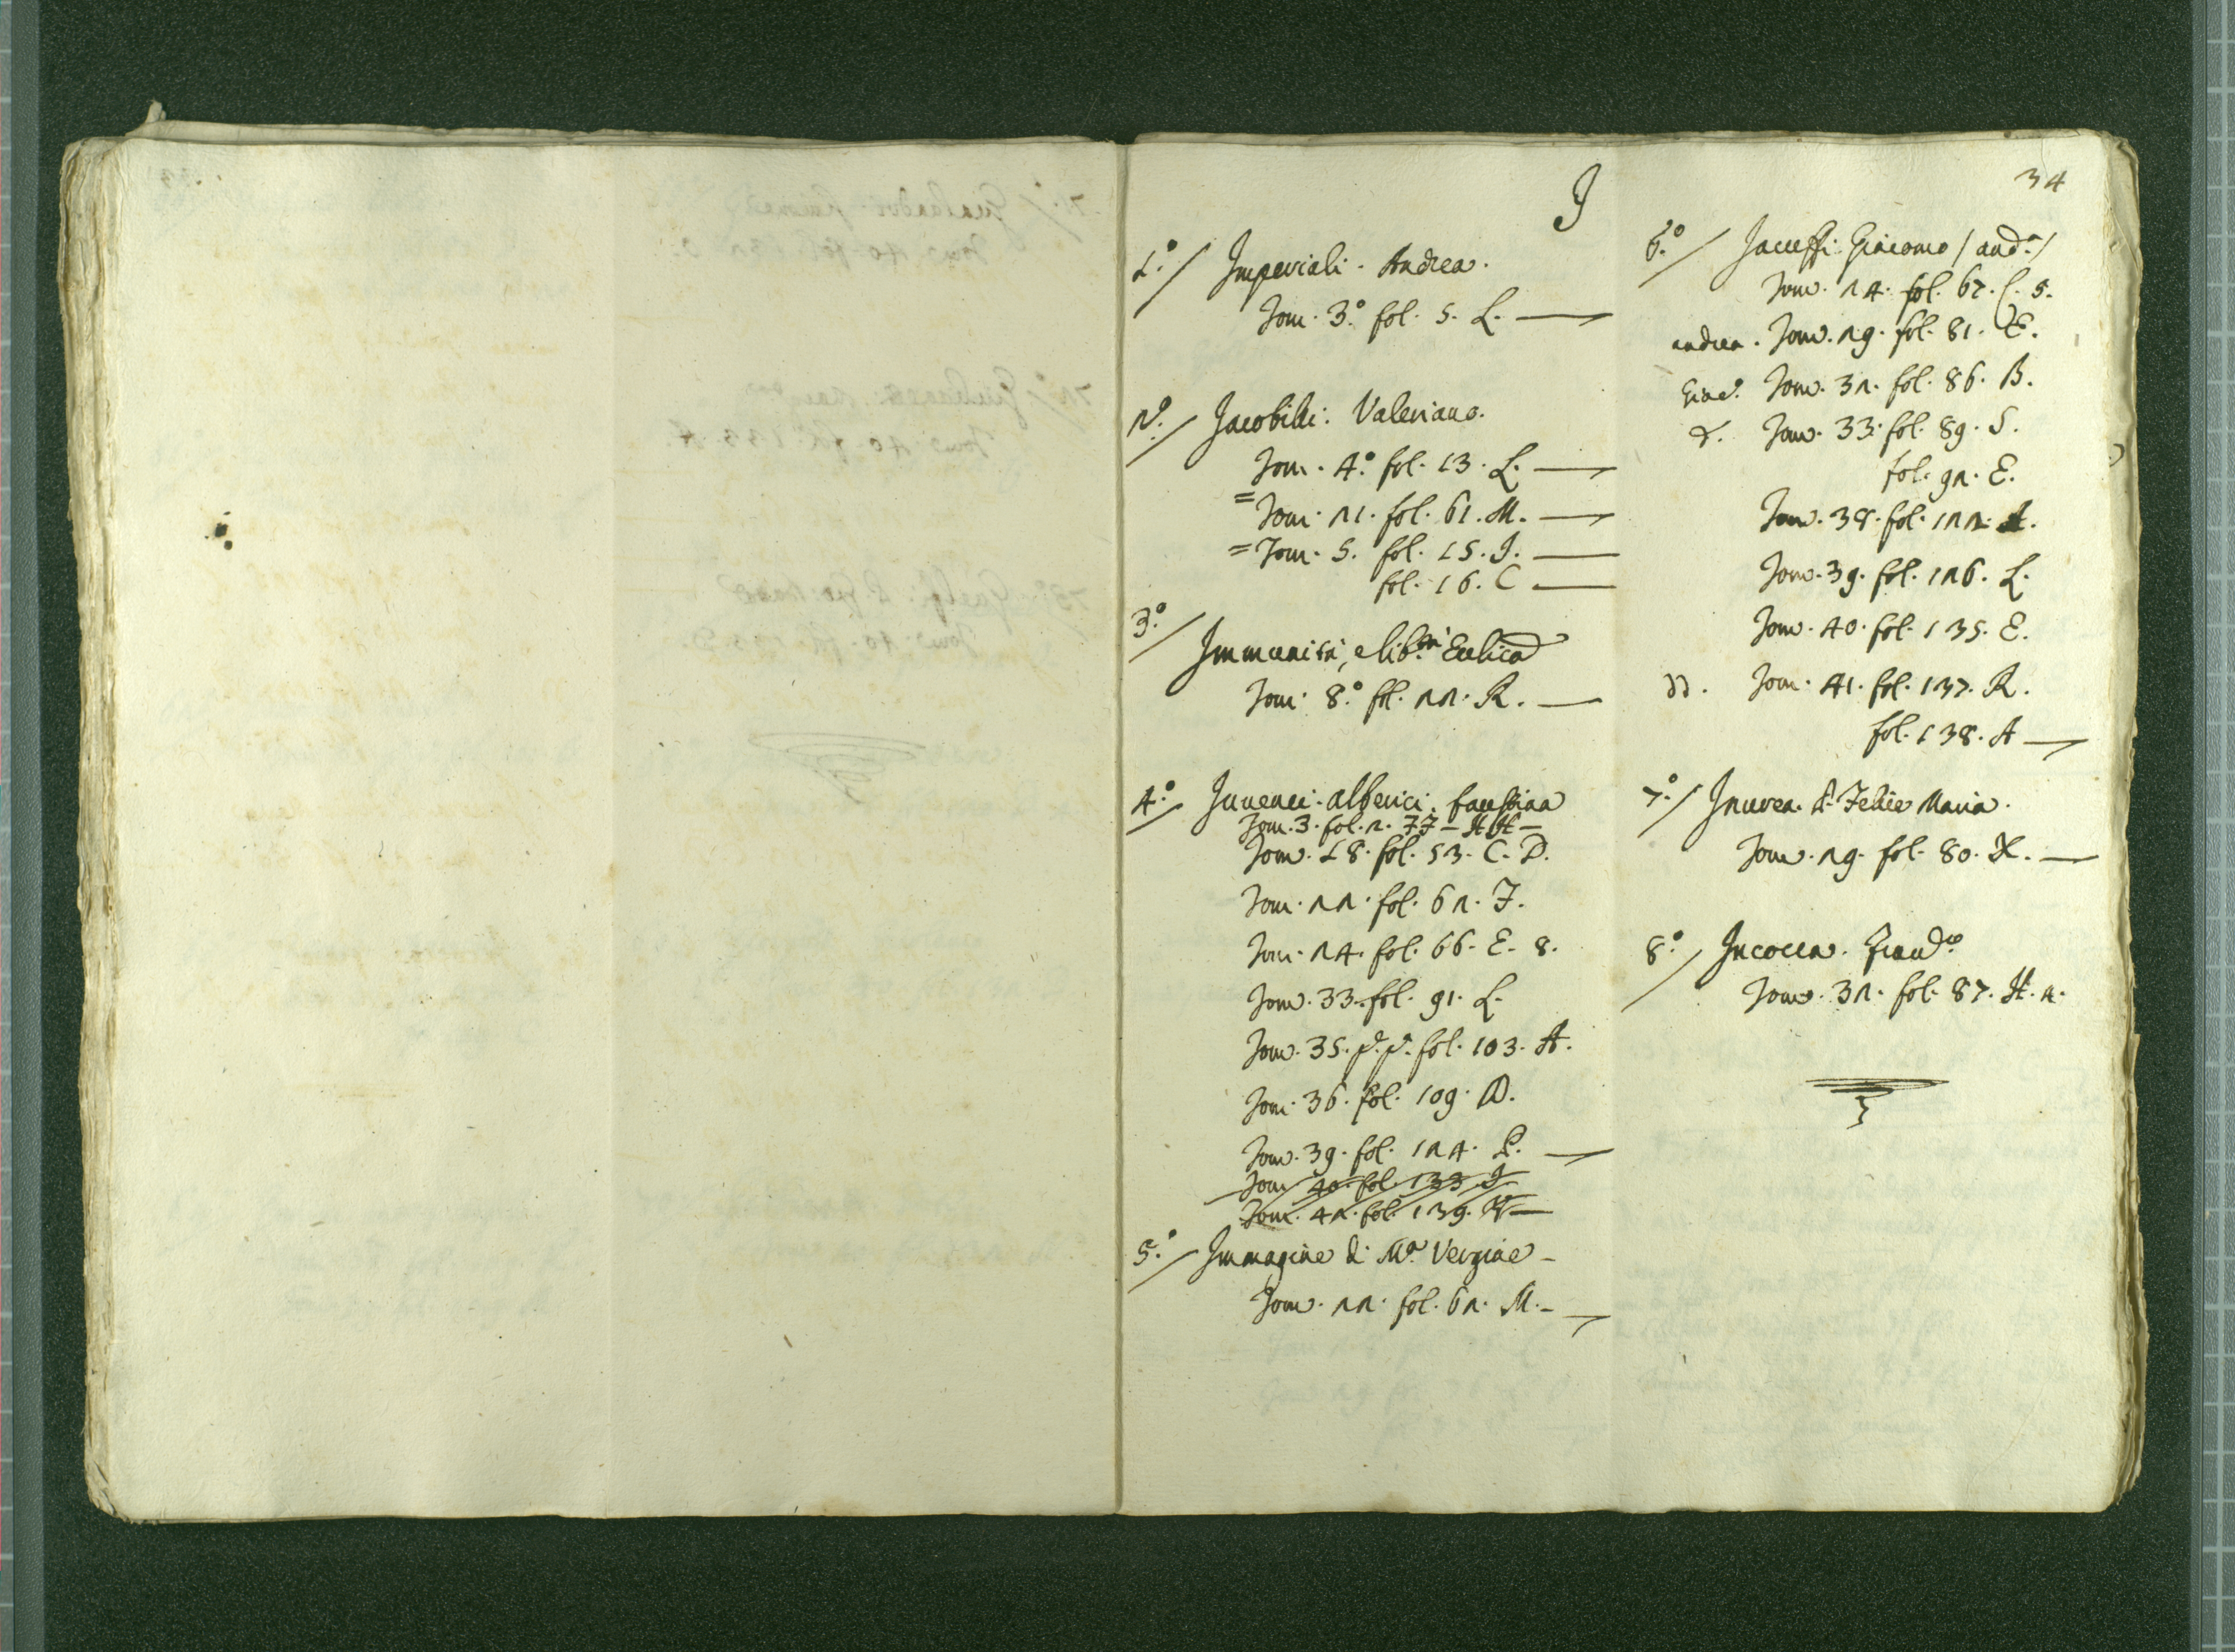 34
I
1.º/ Imperiali. Andrea.
Tom. 3.º fol. 5. L.
2.º/ Jacobilli: Valeriano.
Tom. 4.º fol. 13. L.
= Tom. 21. fol. 61. M.
= Tom. 5. fol. 15. I.
fol. 16. C
3.º/ Immunità, e lib.tà Eccl.ica
Tom. 8.º fol. 22. R.
4.º/ Invenci. alberici. faustina
Tom. 3. fol. 2. 77 - HH -
Tom. 18. fol. 53. C. D.
Tom. 22. fol. 62. I.
Tom. 24. fol. 66. E. 8.
Tom. 33. fol. 91. L.
Tom. 35. p. p. fol. 103. A.
Tom. 36. fol. 109. D.
Tom. 39. fol. 124. P.
Tom. 40. fol. 133. I
Tom. 42. fol. 139.
5.º/ Immagine di M.ª Vergine -
Tom. 22. fol. 62. M. -
6.º/ Jacussi: Giacomo / and.ª /
Tom. 24. fol. 67. C. 5.
andrea. Tom. 29. fol. 81. E.
Giac.º Tom. 32. fol. 86. B.
Tom. 33. fol. 89. S.
fol. 92. E.
Tom. 38. fol. 122. A.
Tom. 39. fol. 126. L.
Tom. 40. fol. 135. E.
Tom. 41. fol. 137. R.
fol. 138. A
7.º/ Invrea. d. Felice Maria.
Tom. 29. fol. 80. X.
8.º/ Incocca.
Tom. 32. fol. 87. H. 2.